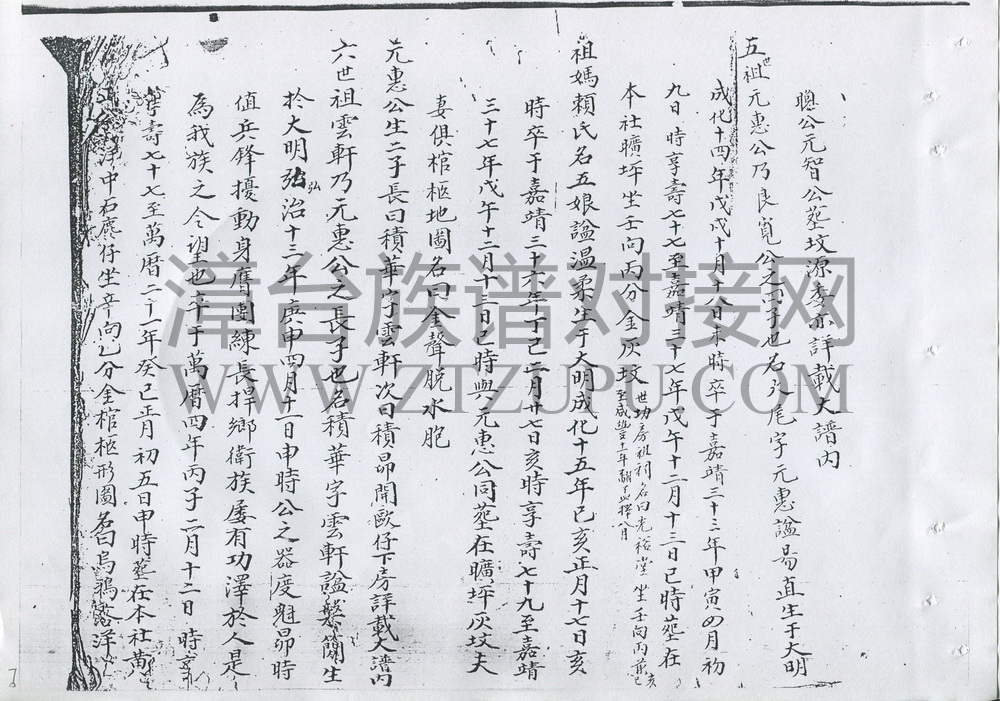 聰公元智公塋坟源委示詳載大譜內
五世祖元惠公乃良寬公之四子也名八尾字元惠諡易直生于大明
成化十四年戊戌十月十八日未時卒于嘉靖三十三年甲寅四月初
九日 時享壽七十七至嘉靖三十七年戊午十二月十三日巳時塋在
本社曠坪坐壬向丙分金灰坟 世功房祖祠名曰光裕堂坐壬向丙兼亥巳
至咸豐十一年 八月
祖媽賴氏名五娘諡温柔生于大明成化十五年己亥正月十七日亥
時卒于嘉靖三十六年丁巳二月廿七日亥時享壽七十九至嘉靖
三十七年戊午十二月十三日巳時與元惠公同塋在曠坪灰坟夫
妻俱棺柩地圖名曰金聲脱水胞
元惠公生二子長曰積華字雲軒次曰積昂開歐仔下房詳載大譜內
六世祖雲軒乃元惠公之長子也名積華字雲軒諡繁簡生
於大明弘弘治十三年庚申四月十一日申時公之器度魁昂時
值兵鋒擾動身膺團練長捍鄉衛族屢有功澤於人是
為我族之令望也卒于萬曆四年丙子二月十二日 時享
壽七十七至萬曆二十一年癸巳正月初五日申時塋在本社萬
洋中石鹿仔坐辛向乙分金棺柩形圖名曰烏鴉落洋
漳台族谱对接网
WWW.ZTZUPU.COM